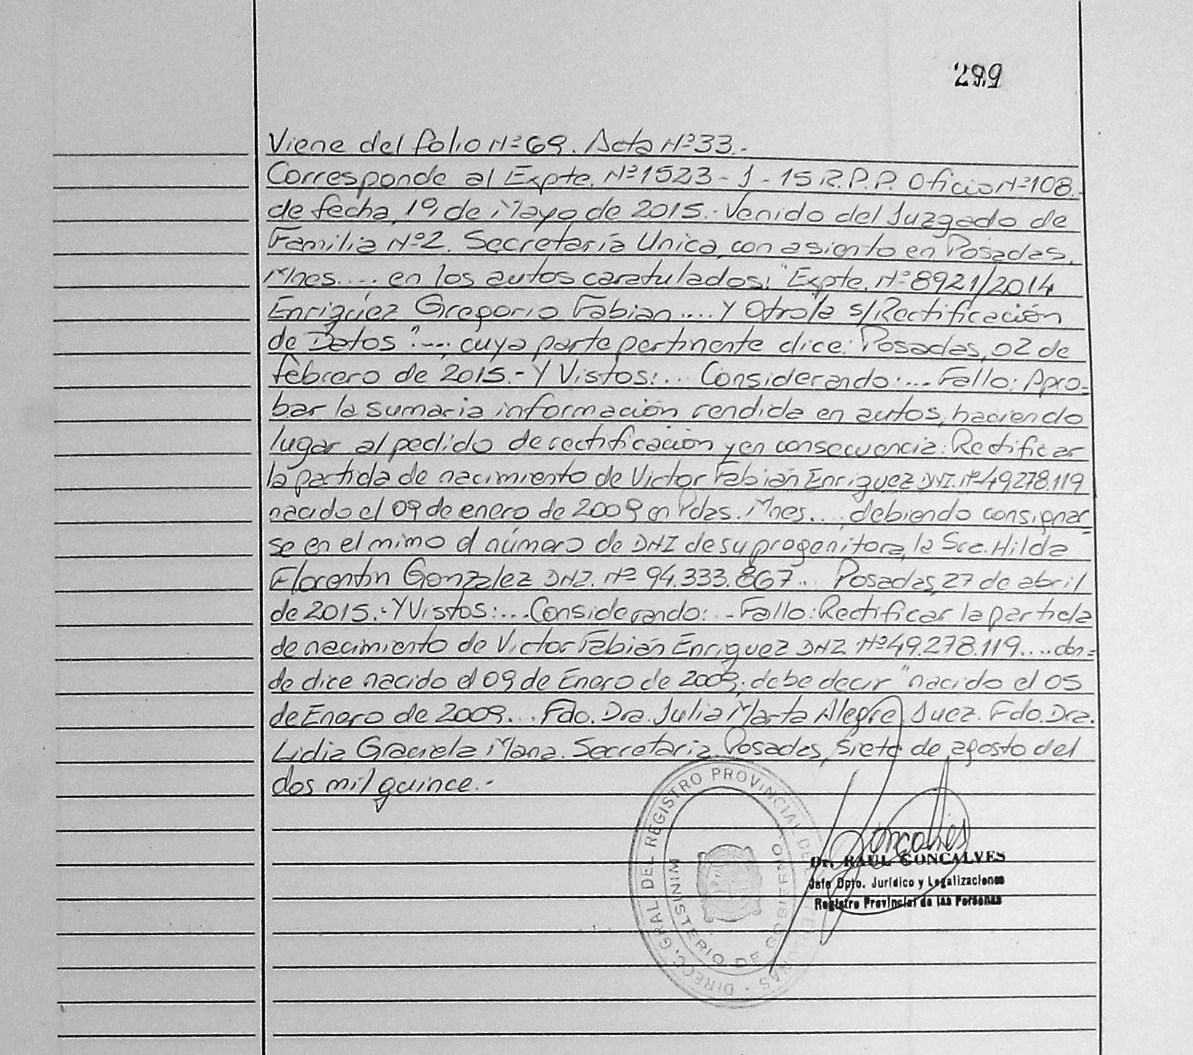 299
Viene del folio Nº 69. Acta Nº 33.-
Corresponde al Expte. Nº 1523 - J - 15 R.P.P. Oficio Nº 108.-
de fecha, 19 de Mayo de 2015.- Venido del Juzgado de
Familia Nº 2. Secretaría Unica, con asiento en Posadas,
Mnes.... en los autos caratulados: "Expte. Nº 8921/2014
Enriguez Gregorio Fabian.... Y Otro/a s/Rectificación
de Datos"...., cuya parte pertinente dice: Posadas, 02 de
febrero de 2015.- Y Vistos:... Considerando:... Fallo: Apro-
bar la sumaria información rendida en autos, haciendo
lugar al pedido de rectificación y en consecuencia: Rectificar
la partida de nacimiento de Victor Fabián Enriguez DNI. Nº 49.278.119
nacido el 09 de enero de 2009 en Pdas. Mnes...., debiendo consignar
se en el mimo el número de DNI de su progenitora, la Sra. Hilda
Florentin Gonzalez DNI. Nº 94.333.867... Posadas, 27 de abril
de 2015.- Y Vistos:... Considerando:... Fallo: Rectificar la partida
de nacimiento de Victor Fabián Enriguez DNI Nº 49.278.119.... don=
de dice nacido el 09 de Enero de 2009; debe decir "nacido el 05
de Enero de 2009... Fdo. Dra. Julia Marta Alegre Juez. Fdo. Dra.
Lidia Graciela Mana. Secretaria. Posadas, siete de agosto del
dos mil quince.-
DIRECC. GRAL DEL REGISTRO PROVINCIAL DE LAS PERSONAS
MINISTERIO DE GOBIERNO
Goncalves
Dr. RAUL GONCALVES
Jefe Dpto. Jurídico y Legalizaciones
Registro Provincial de las Personas